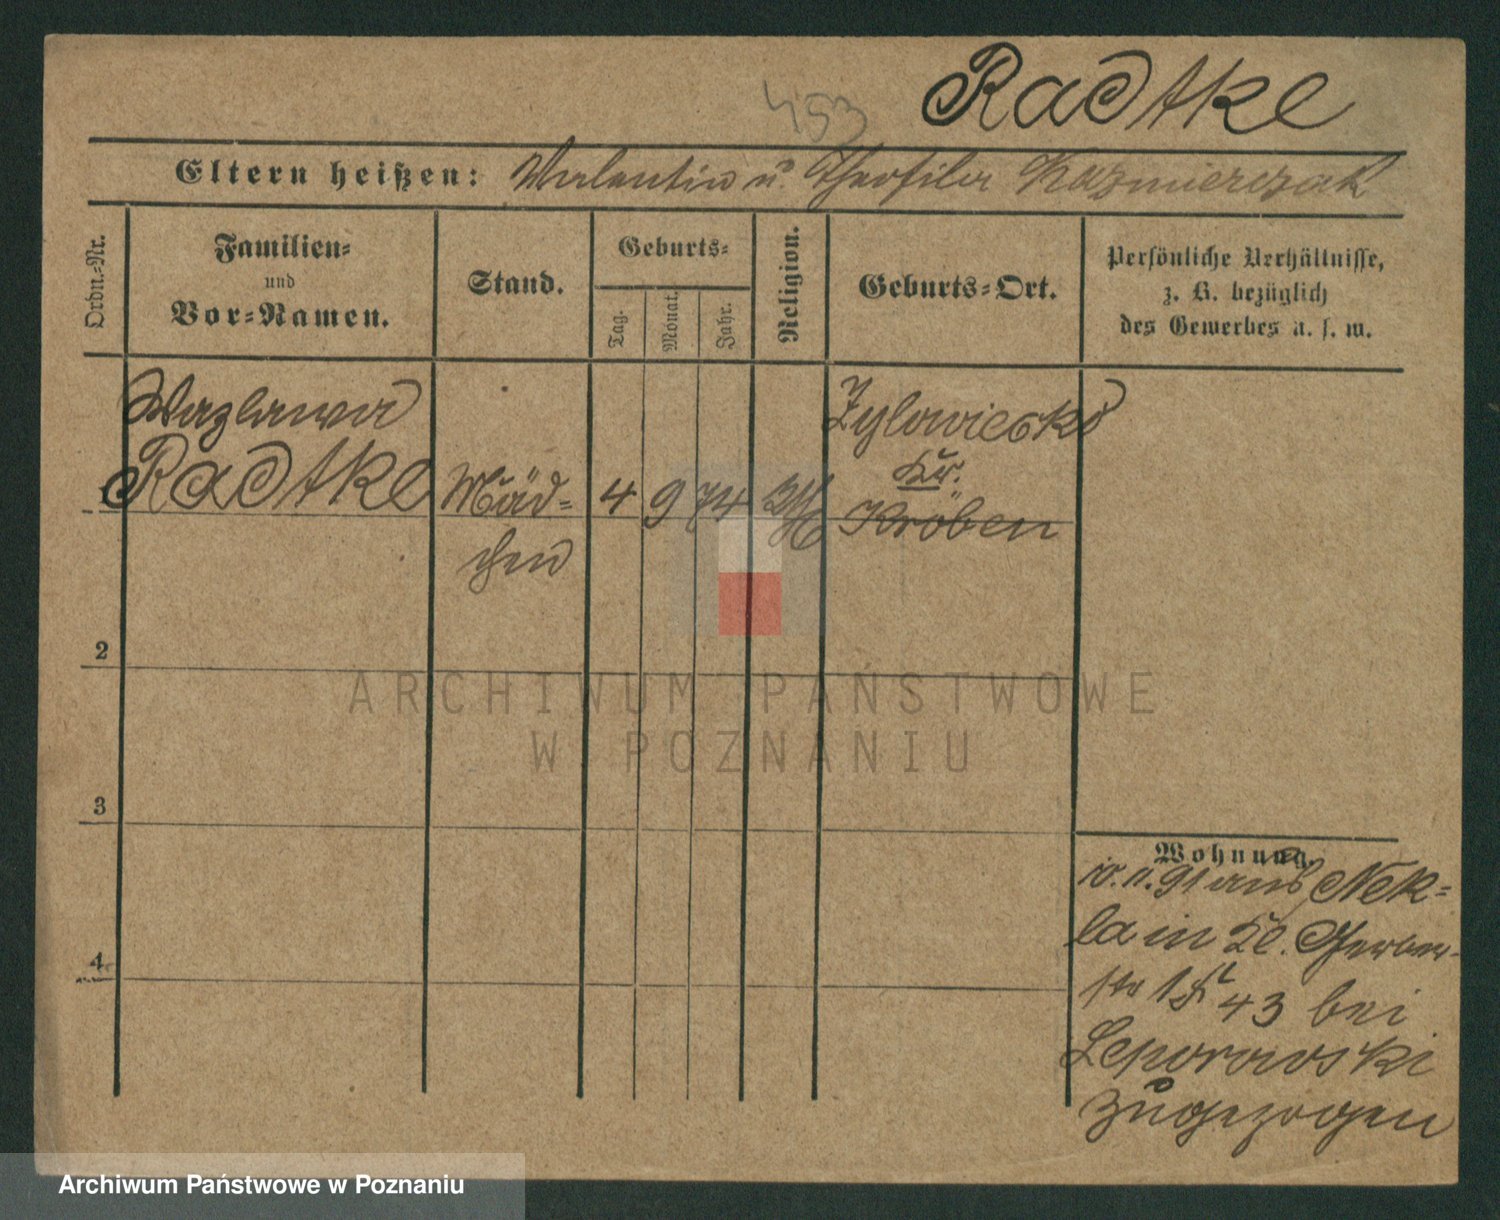 Radtke
453
Eltern heißen: Valentin u. Theofila Kazmierczak
Ordn.-Nr.
Familien-
und
Vor-Namen.
Stand.
Geburts-
Tag.
Monat.
Jahr.
Religion.
Geburts-Ort.
Persönliche Verhältnisse,
z. B. bezüglich
des Gewerbes u. s. w.
Wazlawa
Radtke
Mäd-
chen
4 9 74
Kr.
Kröben
2
3
4
Wohnung.
10. 11. 91 aus Nek-
la in Kl. Gerber-
str 43 bei
Leporowski
zugezogen
ARCHIWUM PAŃSTWOWE
W POZNANIU
Archiwum Państwowe w Poznaniu